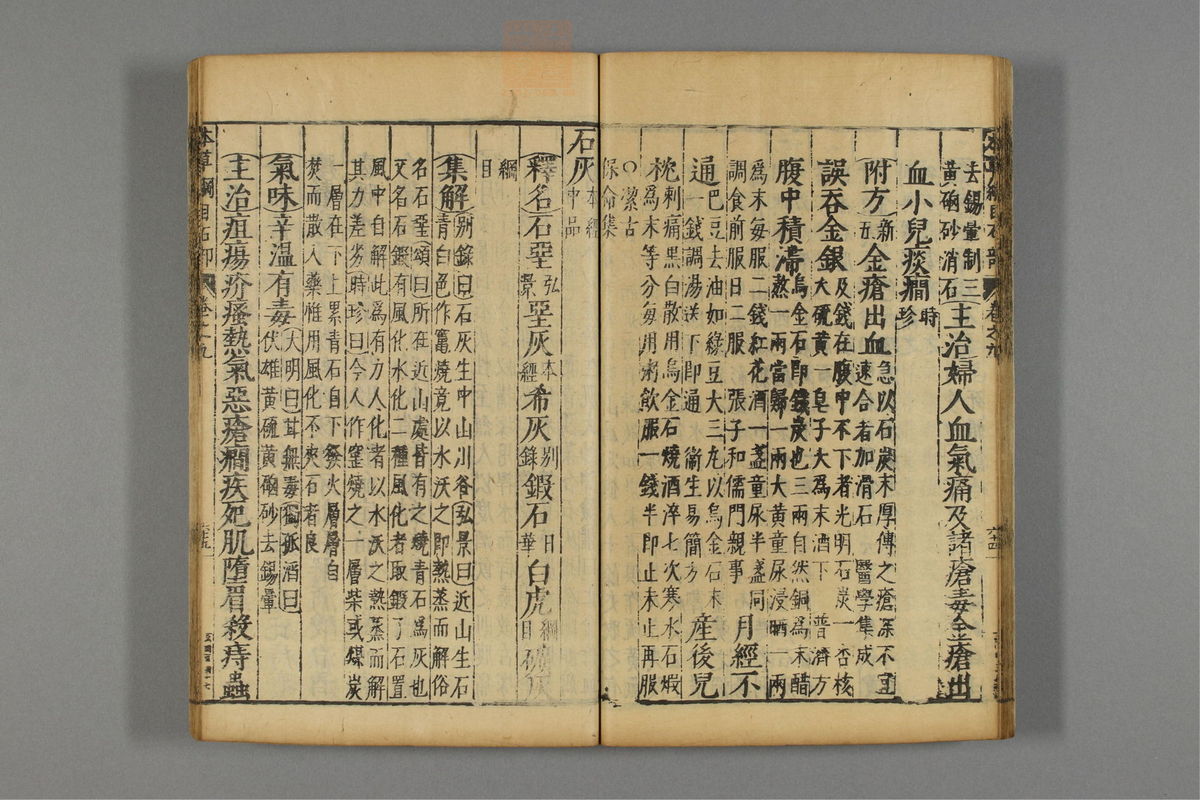 去錫暈制三
黃硇砂消石主治婦人血氣痛及諸瘡毒金瘡出
血小兒痰癎時珍
附方新五金瘡出血急以石炭末厚傅之瘡深不宜
速合者加滑石 醫學集成
誤吞金銀及錢在腹中不下者光明石炭一杏核
大硫黃一皂子大為末酒下 普濟方
腹中積滯烏金石即鐵炭也三兩自然銅為末醋
熬一兩當歸一兩大黃童尿浸晒一兩
為末每服二錢紅花酒一盞童尿半盞同
調食前服日二服 張子和儒門親事 月經不
通巴豆去油如綠豆大三丸以烏金石末
一錢調湯送下即通 衛生易簡方 產後兒
枕刺痛黑白散用烏金石燒酒淬七次寒水石煅
為末等分每用粥飲服一錢半即止未止再服
○潔古
保命集
石灰本經中品
釋名石堊弘景堊灰本經希灰別錄鍛石日華白虎綱目礦灰
綱
目
集解別錄曰石灰生中山川谷弘景曰近山生石
青白色作竈燒竟以水沃之即熱蒸而解俗
名石堊頌曰所在近山處皆有之燒青石為灰也
又名石鍛有風化水化二種風化者取鍛了石置
風中自解此為有力水化者以水沃之熱蒸而解
其力差劣時珍曰今人作窰燒之一層柴或煤炭
一層在下上累青石自下發火層層自
焚而散入藥惟用風化不夾石者良
氣味辛溫有毒大明曰甘無毒獨孤滔曰
伏雄黃硫黃硇砂去錫暈
主治疽瘍疥瘙熱氣惡瘡癎疾死肌墮眉殺痔蟲
本草綱目石部
卷之九
六十五